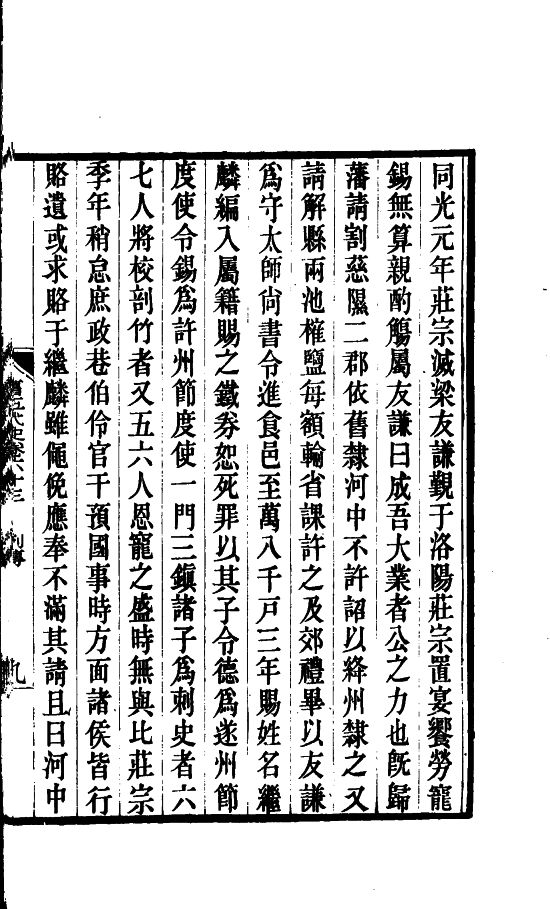 同光元年莊宗滅梁友謙覲于洛陽莊宗置宴饗勞寵
錫無算親酌觴屬友謙曰成吾大業者公之力也旣歸
藩請割慈隰二郡依舊隸河中不許詔以絳州隸之又
請解縣兩池榷鹽每額輸省課許之及郊禮畢以友謙
爲守太師尙書令進食邑至萬八千戶三年賜姓名繼
麟編入屬籍賜之鐵券恕死罪以其子令德爲遂州節
度使令錫爲許州節度使一門三鎭諸子爲刺史者六
七人將校剖竹者又五六人恩寵之盛時無與比莊宗
季年稍怠庶政巷伯伶官干預國事時方面諸侯皆行
賂遺或求賂于繼麟雖僶俛應奉不滿其請且曰河中
舊五代史卷六十三 列傳 九